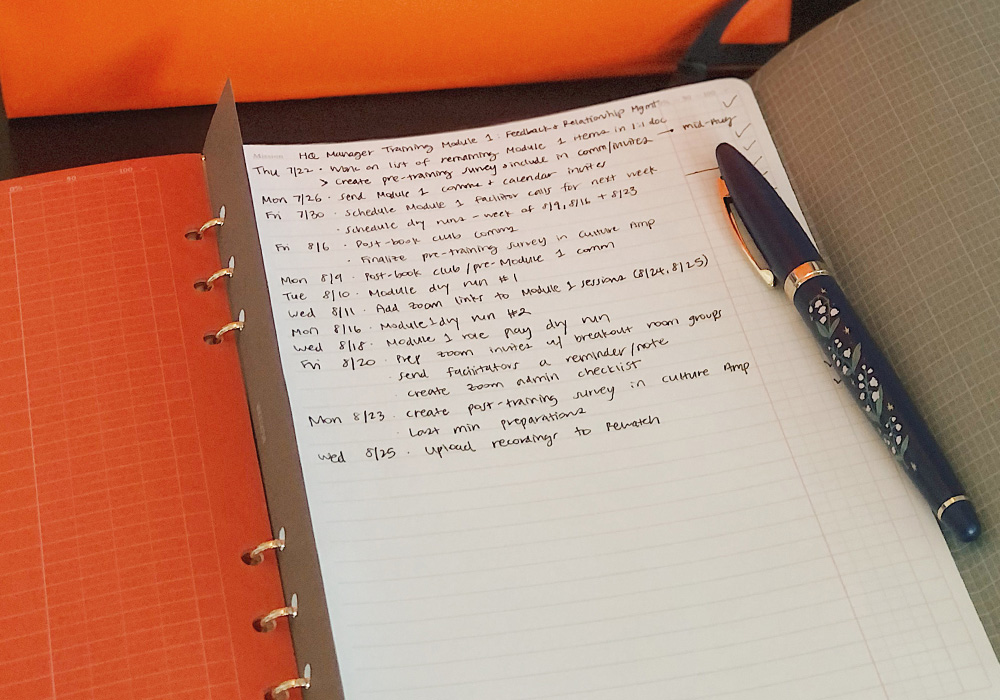 HQ Manager Training Module 1: Feedback & Relationship Mgmt
Thu 7/22 · Work on list of remaining Module 1 items in 1:1 doc → mid-Aug
> create pre-training survey & include in comm/invites
Mon 7/26 · Send Module 1 comms + calendar invites
Fri 7/30 · Schedule Module 1 facilitor calls for next week
· schedule dry runs - week of 8/9, 8/16 + 8/23
Fri 8/6 · Post-book club comms
· Finalize pre-training survey in Culture Amp
Mon 8/9 · Post-book club/pre-Module 1 comm
Tue 8/10 · Module dry run #1
Wed 8/11 · Add zoom links to Module 1 sessions (8/24, 8/25)
Mon 8/16 · Module 1 dry run #2
Wed 8/18 · Module 1 role play dry run
Fri 8/20 · Prep zoom invites w/ breakout room groups
· send facilitators a reminder/note
· create zoom admin checklist
Mon 8/23 · create post-training survey in Culture Amp
· Last min preparations
Wed 8/25 · Upload recordings to Rewatch